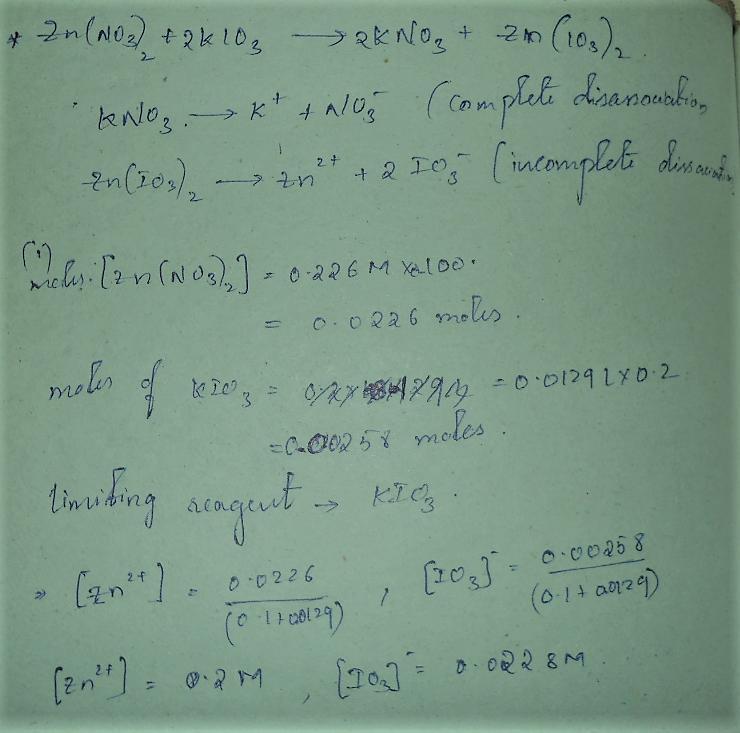 * Zn(NO3)2 + 2KIO3 → 2KNO3 + Zn(IO3)2
KNO3 → K+ + NO3- (complete
Zn(IO3)2 → Zn2+ + 2 IO3- (incomplete
(1)
moles. [Zn(NO3)2] = 0.226 M × 100.
= 0.0226 moles.
moles of KIO3 = = 0.01291 × 0.2
= 0.00258 moles.
limiting reagent → KIO3.
⇒ [Zn2+] = 0.0226 / (0.1 + 0.0129) , [IO3]- = 0.00258 / (0.1 + 0.0129)
[Zn2+] = 0.2 M , [IO3]- = 0.0228 M.